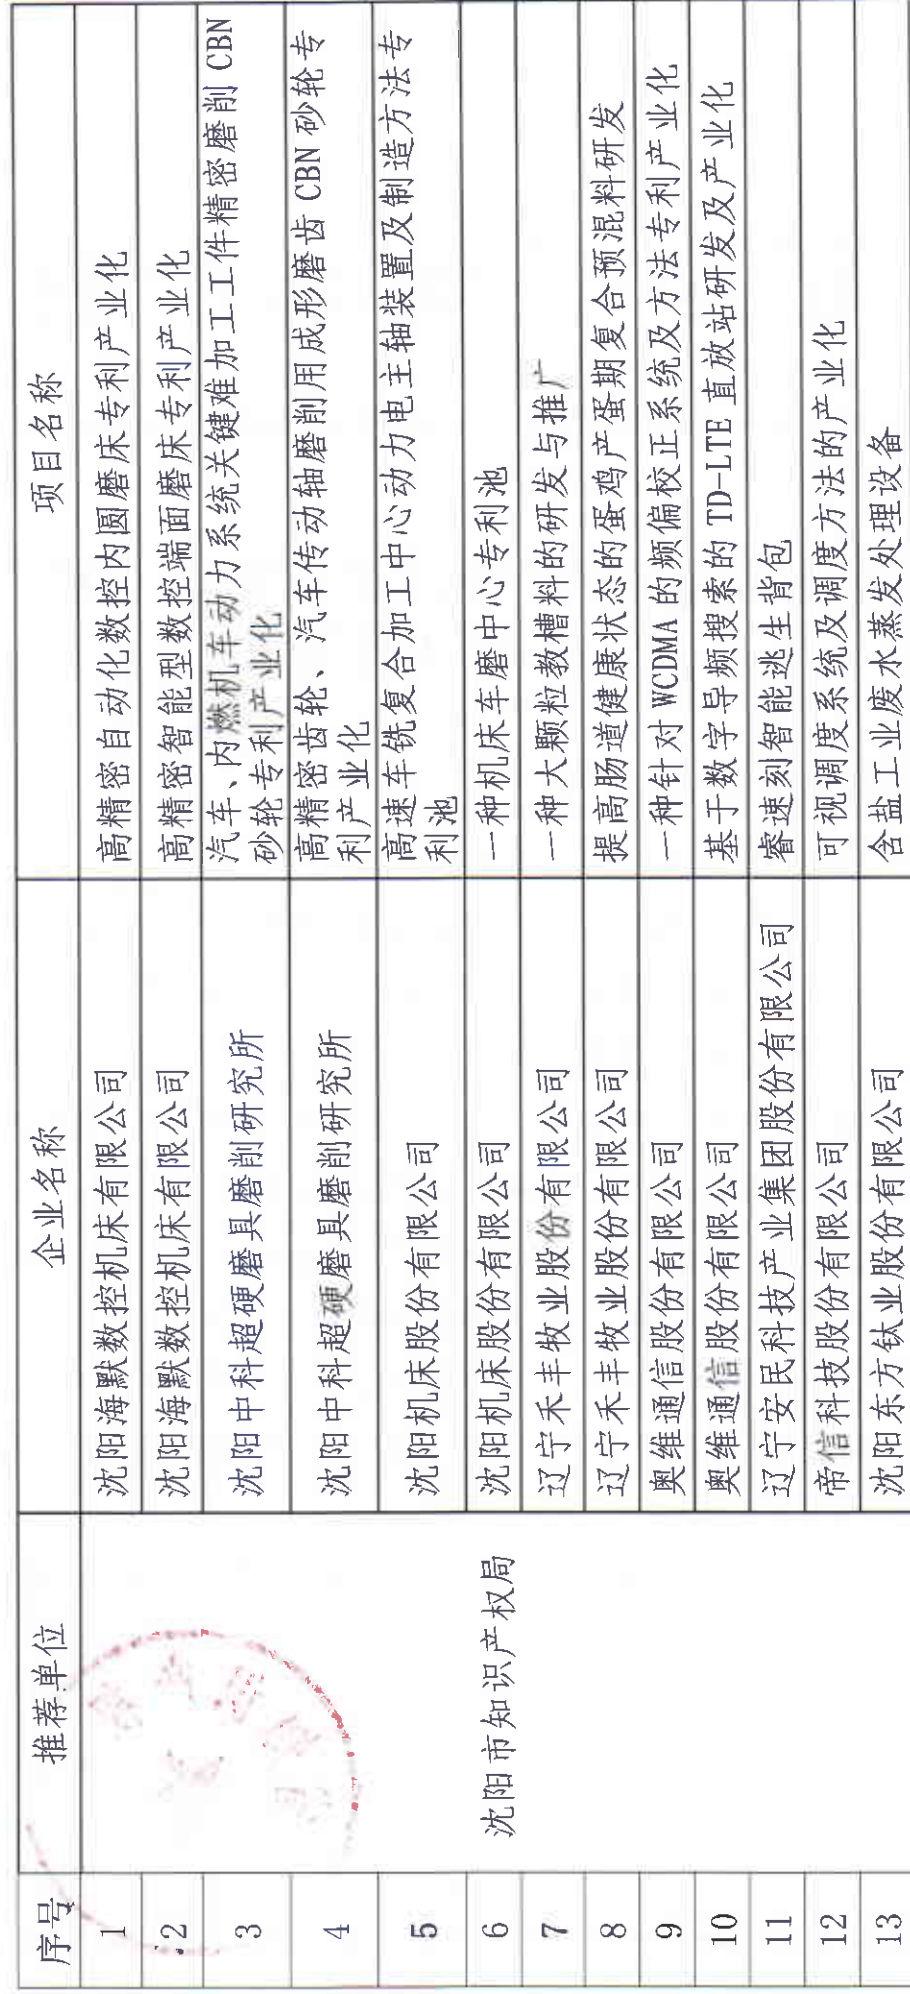 序号 推荐单位 企业名称 项目名称
沈阳市知识产权局
1 沈阳海默数控机床有限公司 高精密自动化数控内圆磨床专利产业化
2 沈阳海默数控机床有限公司 高精密智能型数控端面磨床专利产业化
3 沈阳中科超硬磨具磨削研究所 汽车、内燃机车动力系统关键难加工工件精密磨削 CBN
砂轮专利产业化
4 沈阳中科超硬磨具磨削研究所 高精密齿轮、汽车传动轴磨削用成形磨齿 CBN 砂轮专
利产业化
5 沈阳机床股份有限公司 高速车铣复合加工中心动力电主轴装置及制造方法专
利池
6 沈阳机床股份有限公司 一种机床车磨中心专利池
7 辽宁禾丰牧业股份有限公司 一种大颗粒教槽料的研发与推广
8 辽宁禾丰牧业股份有限公司 提高肠道健康状态的蛋鸡产蛋期复合预混料研发
9 奥维通信股份有限公司 一种针对 WCDMA 的频偏校正系统及方法专利产业化
10 奥维通信股份有限公司 基于数字导频搜索的 TD-LTE 直放站研发及产业化
11 辽宁安民科技产业集团股份有限公司 睿速刻智能逃生背包
12 帝信科技股份有限公司 可视调度系统及调度方法的产业化
13 沈阳东方钛业股份有限公司 含盐工业废水蒸发处理设备